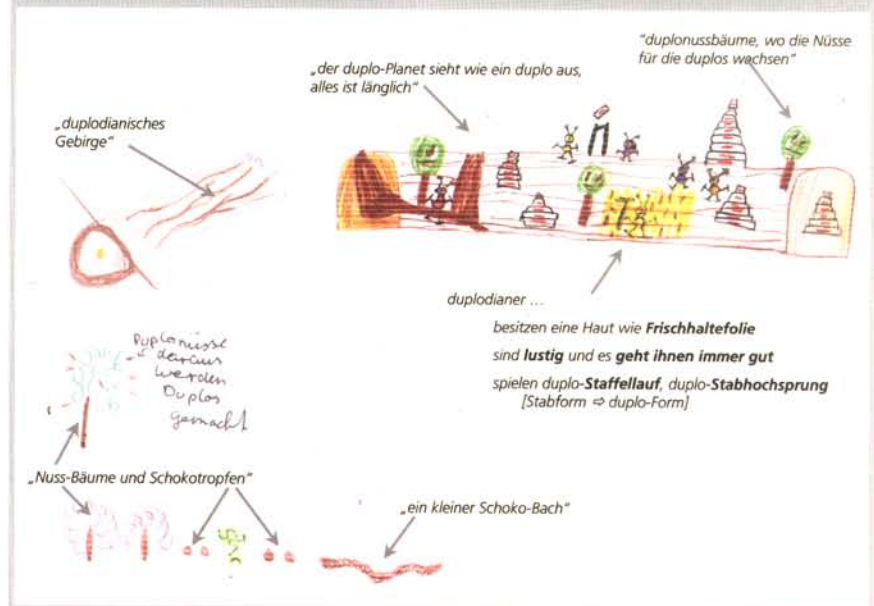 „duplodianisches
Gebirge"
„der duplo-Planet sieht wie ein duplo aus,
alles ist länglich"
"duplonussbäume, wo die Nüsse
für die duplos wachsen"
duplodianer ...
besitzen eine Haut wie Frischhaltefolie
sind lustig und es geht ihnen immer gut
spielen duplo-Staffellauf, duplo-Stabhochsprung
[Stabform ⇨ duplo-Form]
Duplonüsse
daraus
werden
Duplos
gemacht
„Nuss-Bäume und Schokotropfen"
„ein kleiner Schoko-Bach"